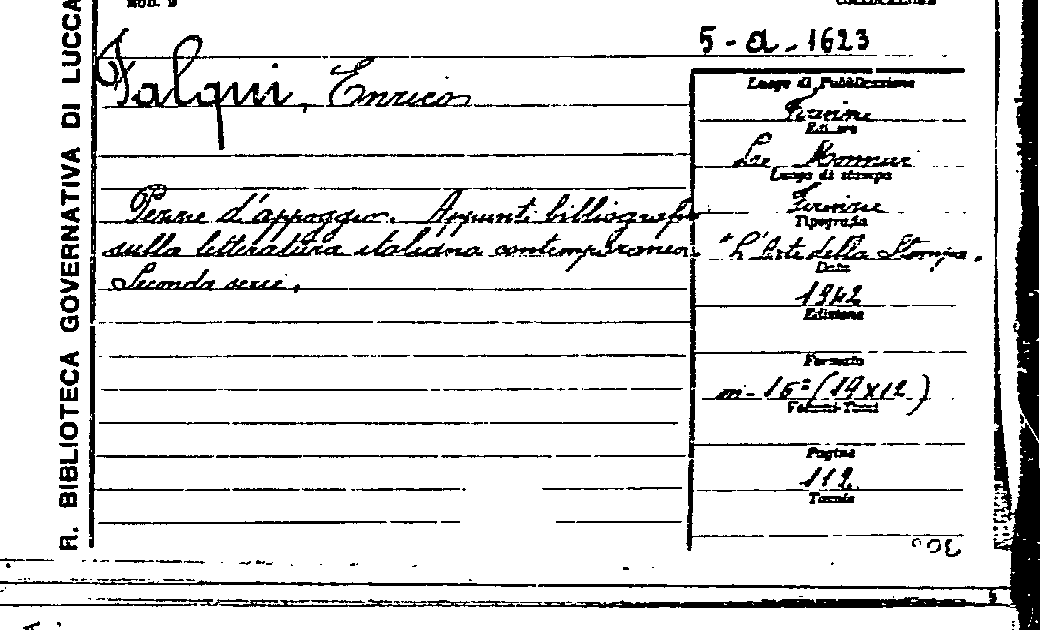 R. BIBLIOTECA GOVERNATIVA DI LUCCA
MOD. B
COLLOCAZIONE
5-a-1623
Falqui, Enrico
Pezze d'appoggio. Appunti bibliografici
sulla letteratura italiana contemporanea.
Seconda serie.
Luogo di Pubblicazione
Firenze
Editore
Le Monnier
Luogo di stampa
Firenze
Tipografia
"L'Arte della Stampa.
Data
1942
Edizione
Formato
in-16º (19x12)
Volumi-Tomi
Pagine
112
Tavole